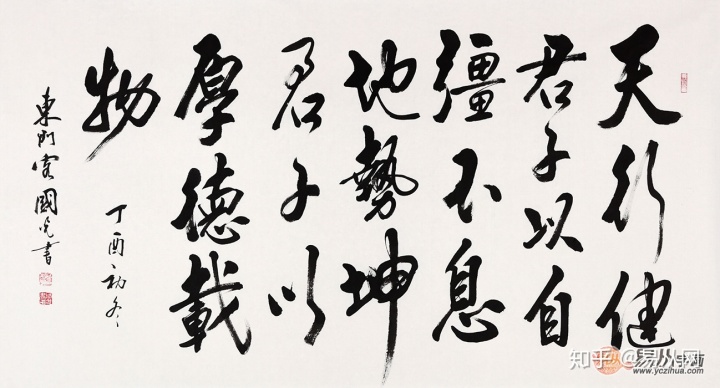 天行健
君子以自
彊不息
地勢坤
君子以
厚德載
物
丁酉初冬
東門國光書
知乎 @易从网
www.yczihua.com